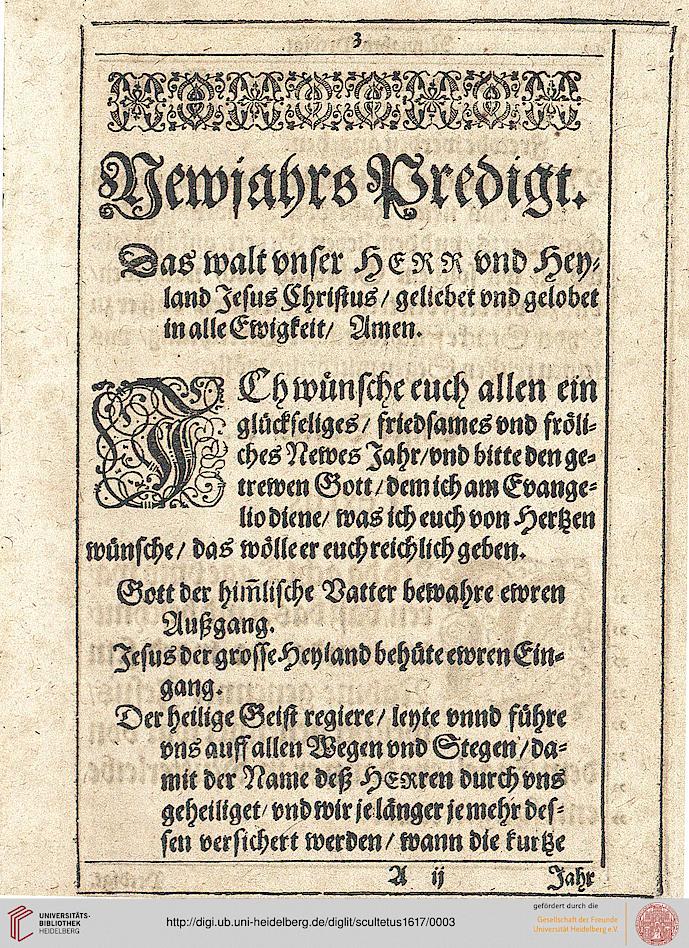 3
Newjahrs Predigt.
Das walt vnser HERR vnd Hey⸗
land Jesus Christus / geliebet vnd gelobet
in alle Ewigkeit / Amen.
ICh wünsche euch allen ein
glückseliges / friedsames vnd fröli⸗
ches Newes Jahr / vnd bitte den ge⸗
trewen Gott / dem ich am Evange⸗
lio diene / was ich euch von Hertzen
wünsche / das wölle er euch reichlich geben.
Gott der him̄lische Vatter bewahre ewren
Außgang.
Jesus der grosse Heyland behüte ewren Ein⸗
gang.
Der heilige Geist regiere / leyte vnnd führe
vns auff allen Wegen vnd Stegen / da⸗
mit der Name deß HERren durch vns
geheiliget / vnd wir je länger je mehr des⸗
sen versichert werden / wann die kurtze
A ij Jahr
UNIVERSITÄTS-
BIBLIOTHEK
HEIDELBERG
http://digi.ub.uni-heidelberg.de/diglit/scultetus1617/0003
gefördert durch die
Gesellschaft der Freunde
Universität Heidelberg e.V.